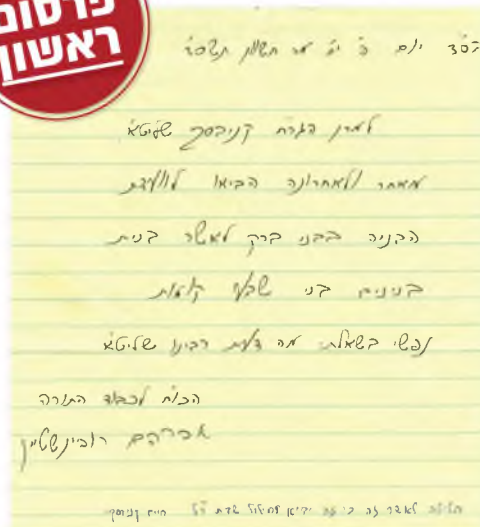 פרסום
ראשון
בס"ד יום ג' י"ג מר חשון תשס"ז
למרן הגר"ח קניבסקי שליט"א
מאחר ולאחרונה הביאו לוועדת
הבניה בבני ברק לאשר בנית
בנינים בני שבע קומות
נפשי בשאלתי מה דעת רבינו שליט"א
הכו"ח לכבוד התורה
אברהם רובינשטיין
חלילה לאשר זה כי זה יביא לחילול שבת ר"ל חיים קניבסקי